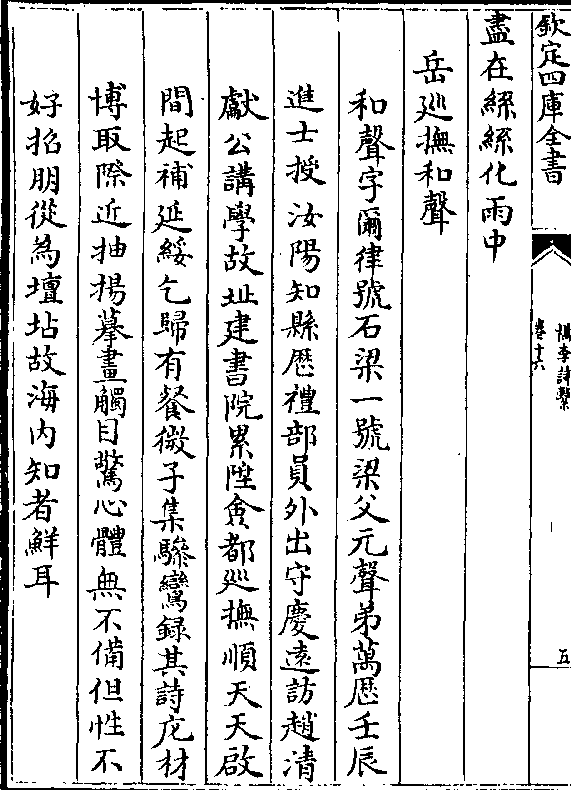 欽定四庫全書
檇李詩繫
卷十六
五
盡在絲絲化雨中
岳巡撫和聲
和聲字爾律號石梁一號梁父元聲弟萬厯壬辰
進士授汝陽知縣厯禮部員外出守慶遠訪趙清
獻公講學故址建書院累陞僉都巡撫順天天啟
間起補延綏乞歸有餐微子集驂鸞録其詩庀材
博取際近抽揚摹畫觸目驚心體無不備但性不
好招朋從為壇坫故海内知者鮮耳